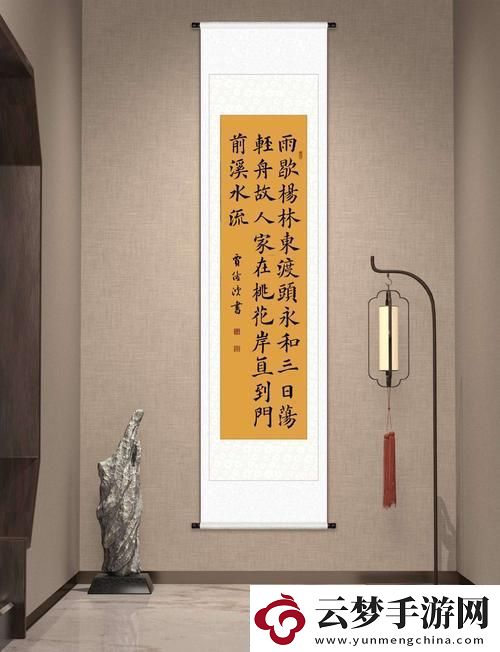 雨歇楊林東渡頭永和三日蕩
輕舟故人家在桃花岸直到門
前溪水流
云梦手游网
www.yunmengchina.com